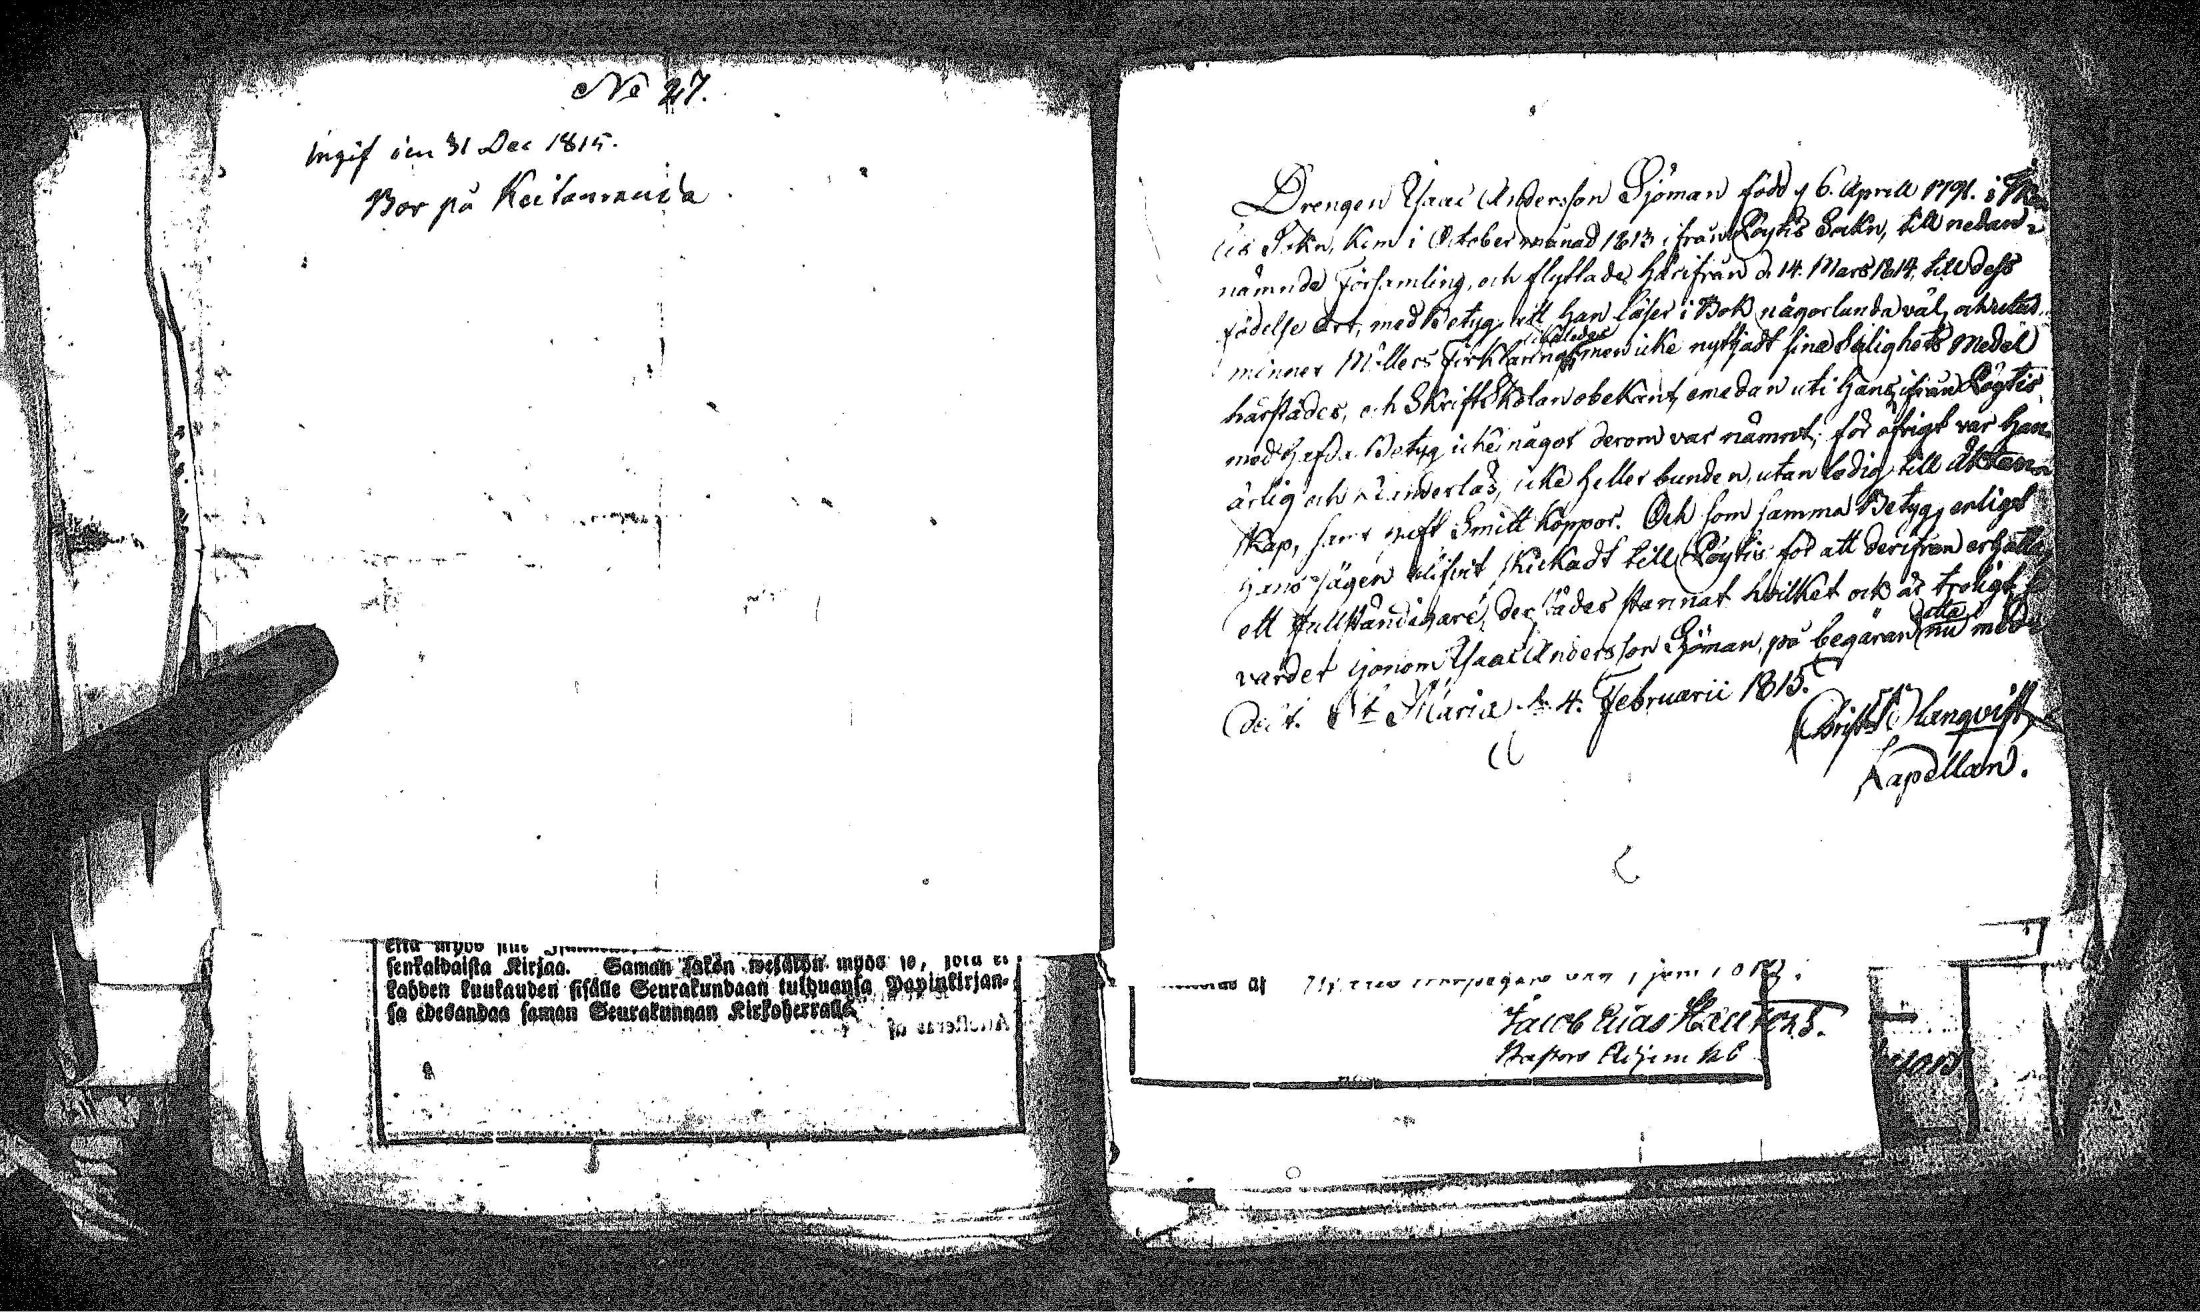 No 27.
Ingif den 31 Dec 1815.
Bor på
Drengen Isaac Andersson Sjöman född d 6. Aprill 1791. i
Sokn, kom i October månad 1813 ifrån Pöytis Sokn, till nedan=
nämnde Församling, och flyttade härifrån d. 14. Mars 1814, till dess
födelse ort, med Betyg att han läser i Bok någorlunda väl, och
minner Möllers Förklaring men icke nyttjadt sina Salighets Medel
härstädes, och Skriftskolan obekant, emedan uti hans, ifrån Pöytis,
med hafda Betyg icke något derom var nämnt; för öfrigt var han
ärlig och icke heller bunden, utan ledig till äkten=
skap, samt haft Smitt Koppor. Och som samma Betyg, enligt
hans sägen blifvit skickadt till Pöytis för att derifrån erhålla
ett fullständigare, der städes stannat hvilket ock är troligt,
varder honom Isaac Andersson Sjöman, på begäran detta nu med=
delt. St Maria d. 4. Februarii 1815.
Christ. Blanqvist
Kapellan.
senkaldaista Kirjaa. Saman sakon wetäkön myös se, joka ei
kahden kuukauden sisälle Seurakundaan tulduansa Papinkirjan=
sa edesandaa saman Seurakunnan Kirkoherralle.
Jacob Elias